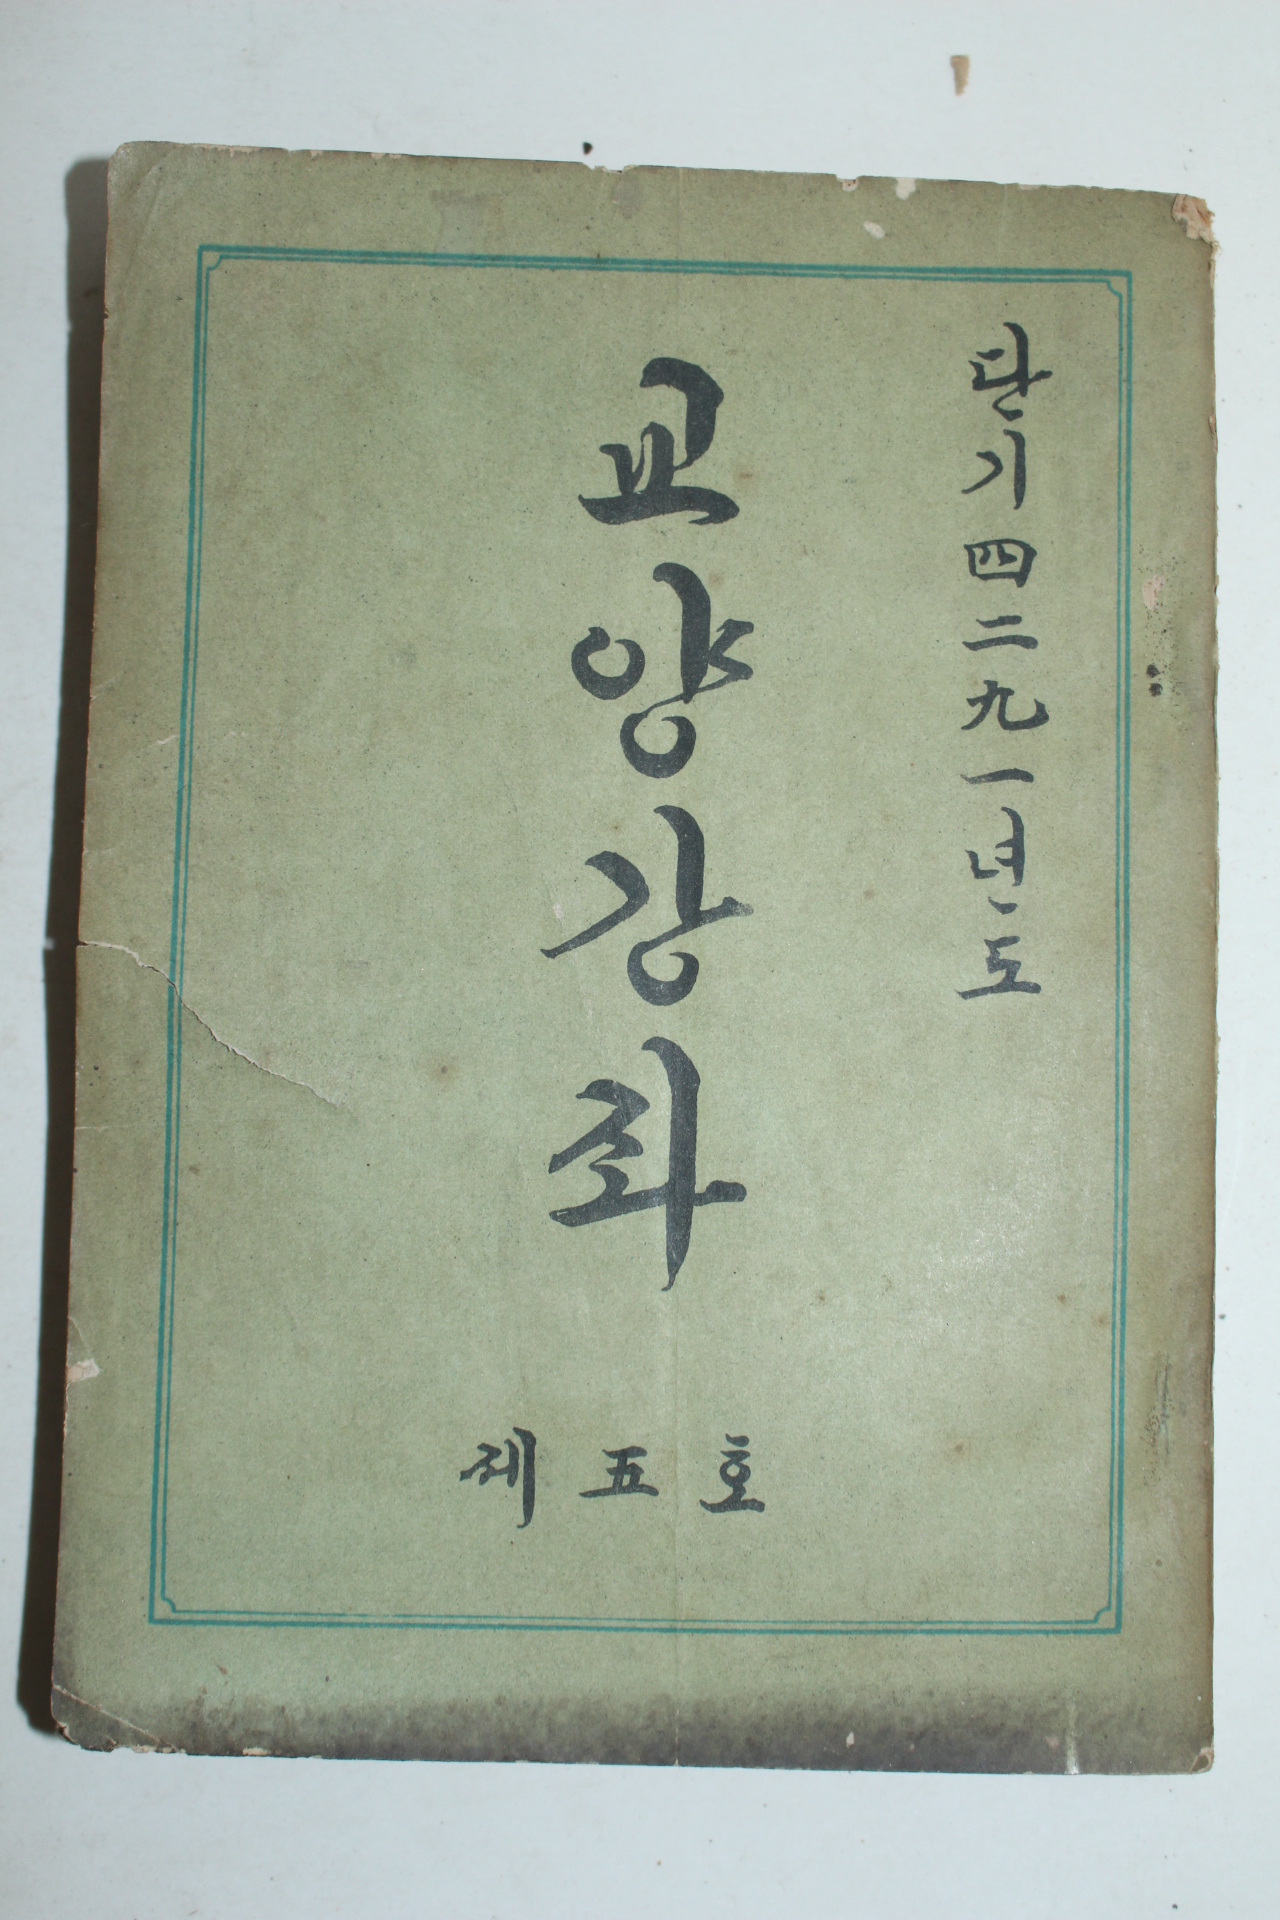 단기四二九一년도
교양강좌
제五호